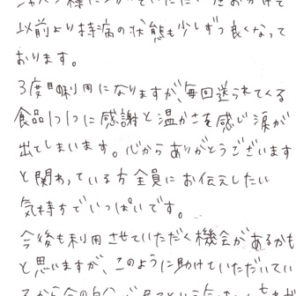 以前より持病の状態も少しずつ良くなって
おります。
3度目の利用になりますが、毎回送られてくる
食品1つ1つに感謝と温かさを感じ涙が
出てしまいます。心からありがとうございます
と関わっている方全員にお伝えしたい
気持ちでいっぱいです。
今後も利用させていただく機会があるかも
と思いますが、このように助けていただいてい